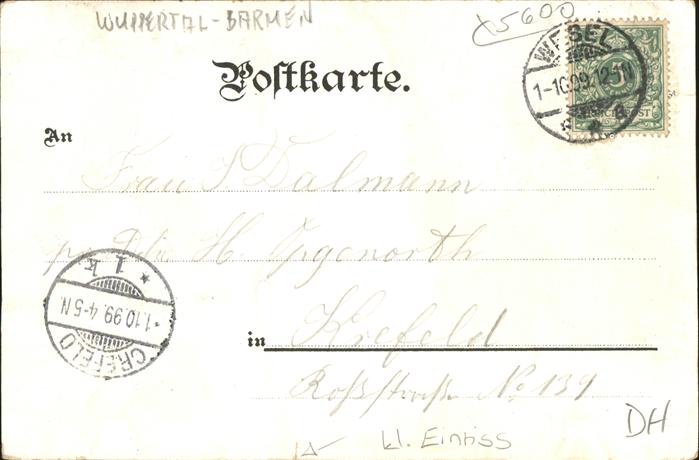 WUPPERTAL-BARMEN
x5600
WESEL
1-10.99.12-1N
a
REICHSPOST
Postkarte.
An
Frau S Dalmann
H.
in Krefeld
Roßstraße No 139
CREFELD
1.10.99.4-5N.
* 1 k
DH
kl. Einriss